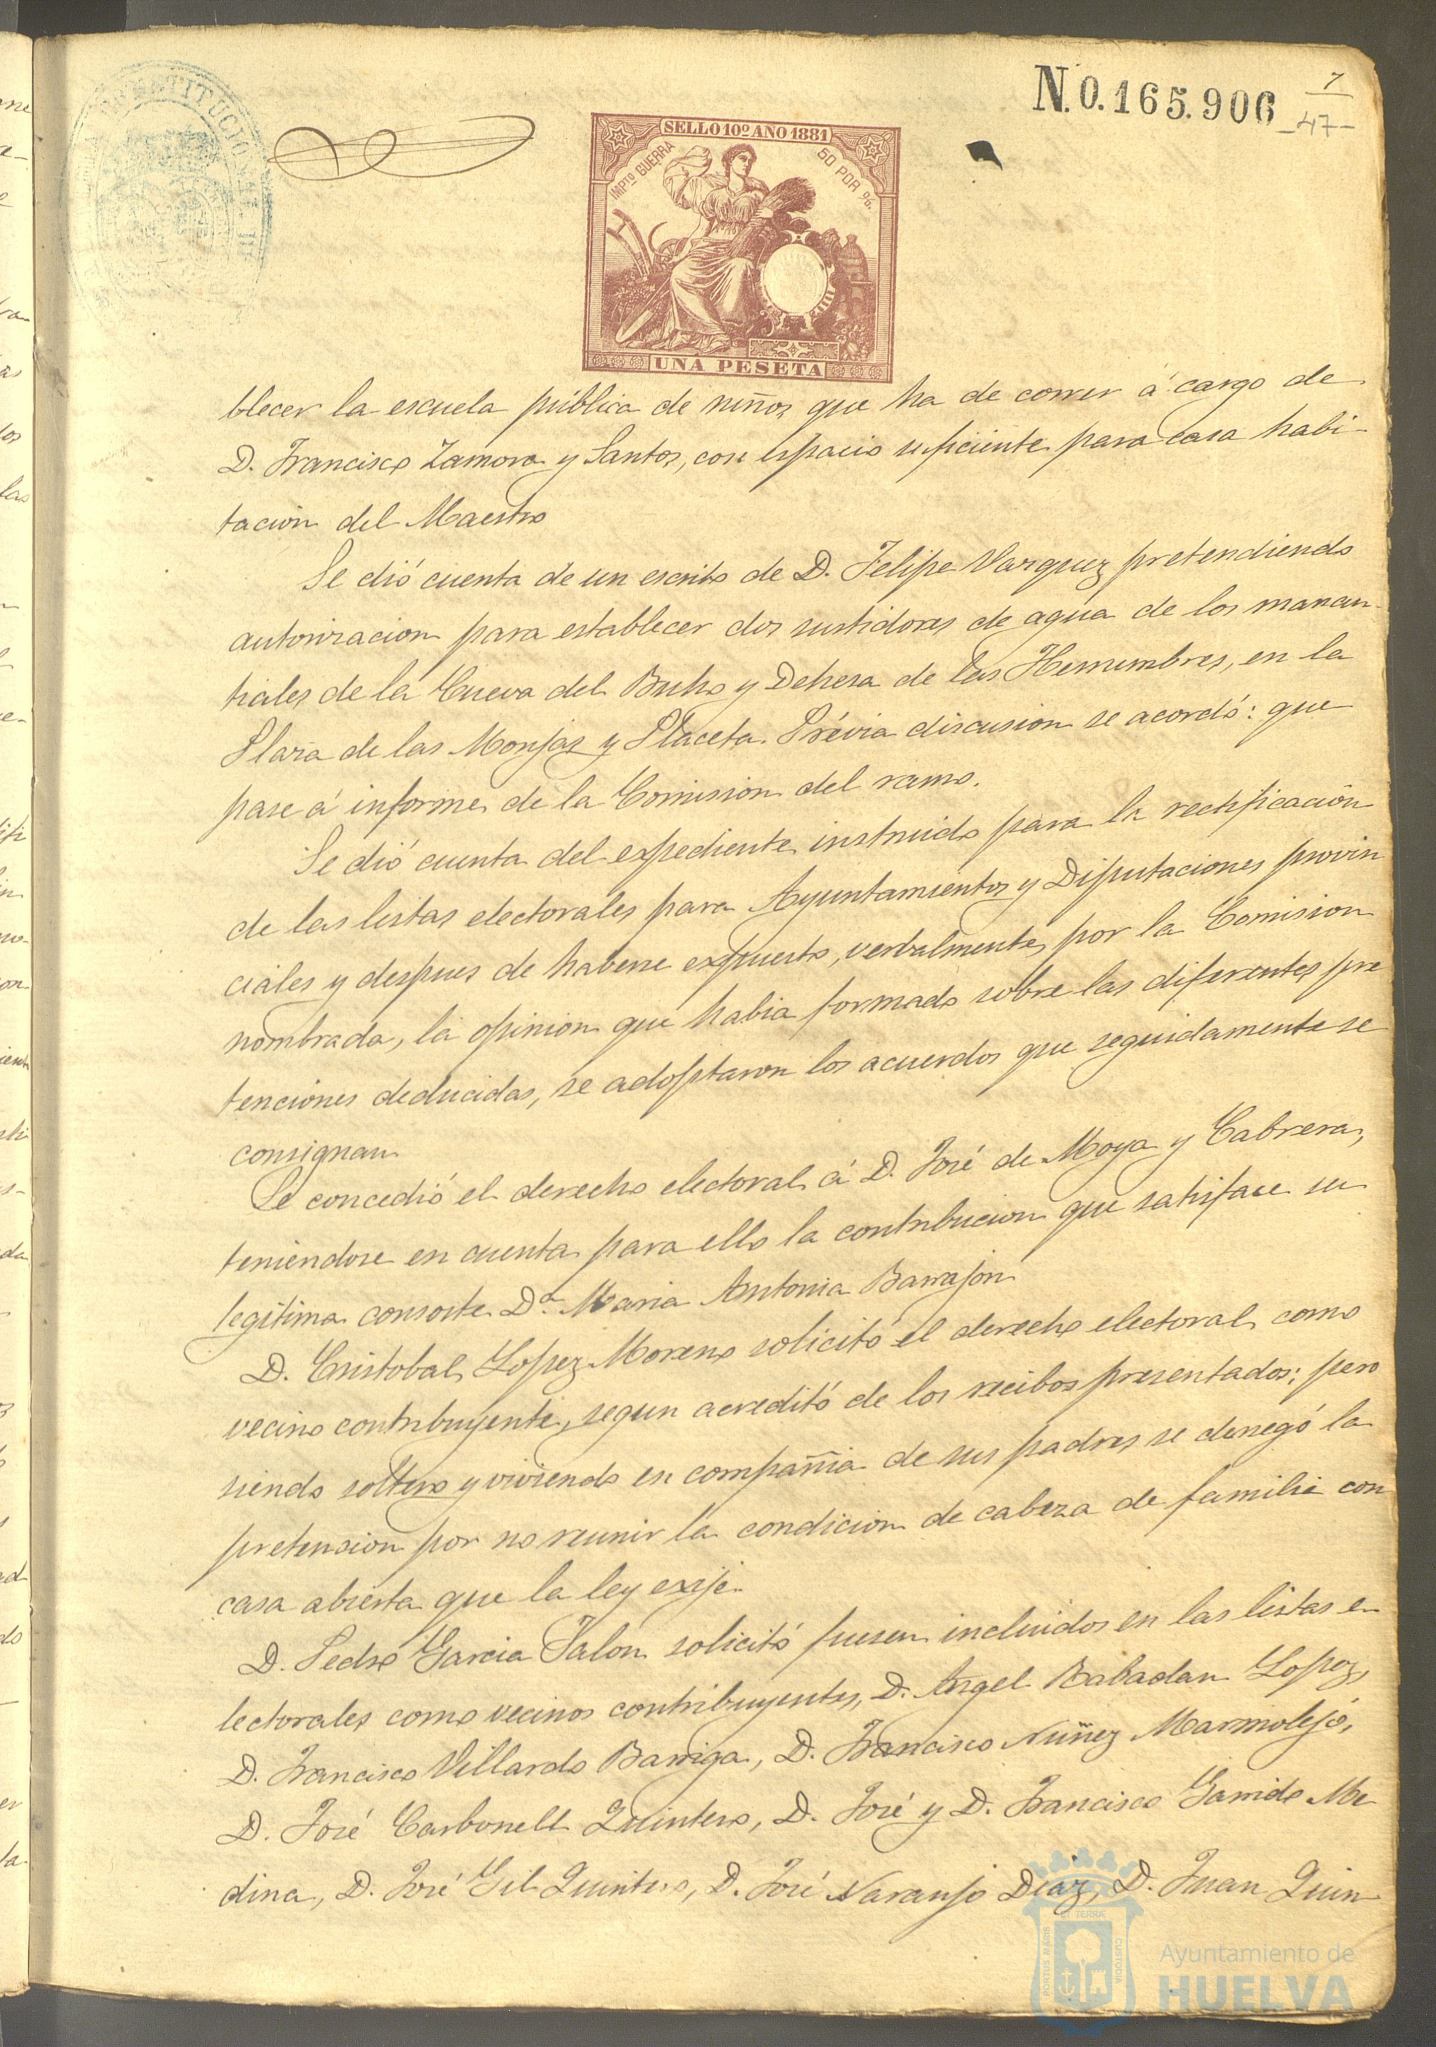 N.0.165.906
7
-47-
CONSTITUCIONAL
SELLO 10º AÑO 1881
IMPTO GUERRA
50 POR %.
UNA PESETA
blecer la escuela pública de niños, que ha de correr á cargo de
D. Francisco Zamora y Santos, con espacio suficiente para casa habi-
tacion del Maestro
Se dió cuenta de un escrito de D. Felipe Vazquez pretendiendo
autorizacion para establecer dos surtidores de agua de los manan-
tiales de la Cueva del Buho y Dehesa de las Herrumbres, en la
Plaza de las Monjas y Placeta. Prévia discusion se acordó: que
pase á informe de la Comision del ramo.
Se dió cuenta del expediente instruido para la rectificación
de las listas electorales para Ayuntamientos y Diputaciones provin
ciales y despues de haberse expuesto, verbalmente, por la Comision
nombrada, la opinion que habia formado sobre las diferentes pre
tenciones deducidas, se adoptaron los acuerdos que seguidamente se
consignan.
Se concedió el derecho electoral á D. José de Moya y Cabrera,
teniéndose en cuenta para ello la contribucion que satisface su
legítima consorte Dª Maria Antonia Barrajon
D. Cristobal Lopez Moreno solicitó el derecho electoral como
vecino contribuyente, segun acreditó de los recibos presentados; pero
siendo soltero y viviendo en compañia de sus padres se denegó la
pretension por no reunir la condicion de cabeza de familia con
casa abierta que la ley exije.
D. Pedro Garcia Jalon solicitó fuesen incluidos en las listas e-
lectorales como vecinos contribuyentes, D. Angel Rabadan Lopez,
D. Francisco Villardo Barriga, D. Francisco Nuñez Marmolejo,
D. José Carbonell Quintero, D. José y D. Francisco Garrido Me
dina, D. José Gil Quintero, D. José Naranjo Diaz, D. Juan Quin-
Ayuntamiento de
HUELVA